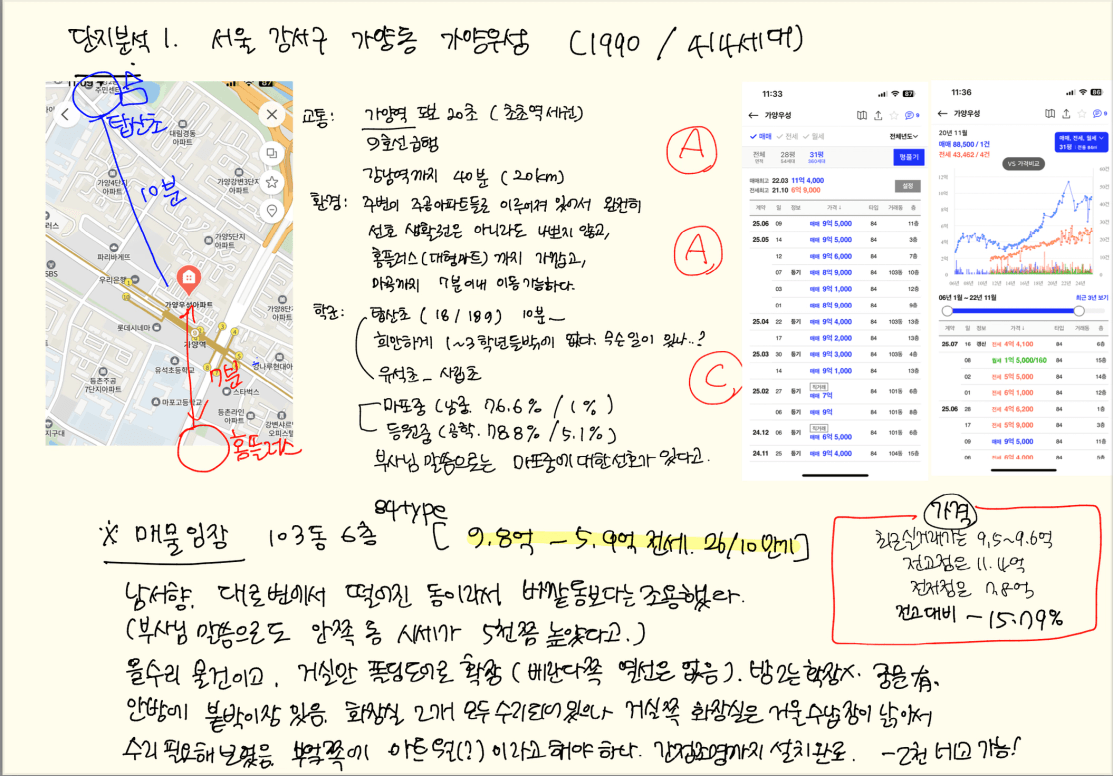 단지분석 1. 서울 강서구 가양동 가양우성 (1990 / 414세대)
탑산초
10분
대림경동
아파트
가양4단지
아파트
가양강변3단지
아파트
가양5단지
아파트
파리바게뜨
SBS
우리은행
가양우성아파트
가양8단지
롯데시네마
가양역
유석초등학교
등촌주공
7단지아파트
마포고등학교
스타벅스
7분
홈플러스
교통: 가양역 도보 20초 (초초역세권)
9호선 급행
강남역까지 40분 (20km)
A
환경: 주변이 주공아파트들로 이루어져 있어서 완전히
선호 생활권은 아니라도 나쁘지 않고,
홈플러스(대형마트)까지 가깝고,
마곡까지 7분이내 이동가능하다.
A
학군: 탑산초 (18/189) 10분
희안하게 1~3학년들밖에 없다. 무슨일이 있나..?
유석초_ 사립초
마포중 (남중. 76.6% / 1%)
등원중 (공학. 78.8% / 5.1%)
부사님 말씀으로는 마포중에 대한선호가 있다고.
C
11:33
87
가양우성
9
매매 전세 월세
전체년도
전체 28평 31평
면적 54세대 360세대
평풀기
매매최고 22.03 11억 4,000
전세최고 21.10 6억 9,000
설정
계약 일 정보 가격 타입 거래동 층
25.06 09 매매 9억 5,000 84 11층
25.05 14 매매 9억 5,000 84 3층
12 매매 9억 6,000 84 7층
07 등기 매매 8억 9,000 84 103동 10층
03 매매 9억 1,000 84 12층
01 매매 8억 9,000 84 9층
25.04 22 등기 매매 9억 4,000 84 103동 13층
17 매매 9억 2,000 84 13층
25.03 30 등기 매매 9억 3,000 84 103동 4층
14 매매 9억 1,000 84 13층
직거래
25.02 27 등기 매매 7억 84 101동 6층
06 등기 매매 9억 84 101동 8층
직거래
24.12 06 등기 매매 6억 5,000 84 101동 6층
24.11 25 등기 매매 9억 4,000 84 104동 15층
11:36
86
가양우성
9
20년 11월
매매 88,500 / 1건
전세 43,462 / 4건
매매, 전세, 월세
31평
VS 가격비교
06년 1월 ~ 22년 11월
최근 3년 보기
계약 일 정보 가격 타입 거래동 층
25.07 16 갱신 전세 4억 4,100 84 6층
08 월세 1억 5,000/160 84 15층
02 전세 5억 5,000 84 14층
01 전세 6억 1,000 84 12층
25.06 28 전세 4억 6,200 84 1층
17 전세 5억 9,000 84 3층
09 매매 9억 5,000 84 11층
08 전세 6억 4,000 84 5층
※ 매물임장 103동 6층
84type
[ 9.8억 - 5.9억 전세. 26/10만기]
가격
최근실거래가는 9.5~9.6억
전고점은 11.4억
전저점은 7.8억
전고대비 -15.79%
남서향. 대로변에서 떨어진 동이라서 바깥동보다는 조용했다.
(부사님 말씀으로도 안쪽 동 시세가 5천쯤 높았다고.)
올수리 물건이고, 거실만 폴딩도어로 확장 (베란다쪽 역선은 없음). 방2는 확장X. 중문有.
안방에 붙박이장 있음. 화장실 2개 모두 수리되어있으나 거실쪽 화장실은 거울수납장이 낡아서
수리 필요해보였음 부엌쪽에 아트월(?)이라고해야하다. 간접조명까지 설치완료. -2천 네고 가능!